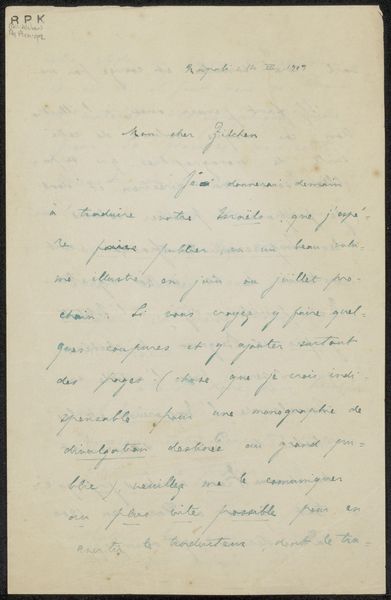 RPK
Napoli 12 III 1909
Mon cher Zilcken
Je donnerai demain
à traduire votre Israëls, que j'espè-
re publier en un beau volu-
me illustré en juin ou juillet pro-
chain. Si vous croyez y faire quel-
ques coupures et y ajouter surtout
des pages (chose que je crois indi-
spensable pour une monographie de
divulgation destinée au grand pu-
blic), veuillez me le comuniquer
au plus vite possible pour en
le traducteur, dont le tra-